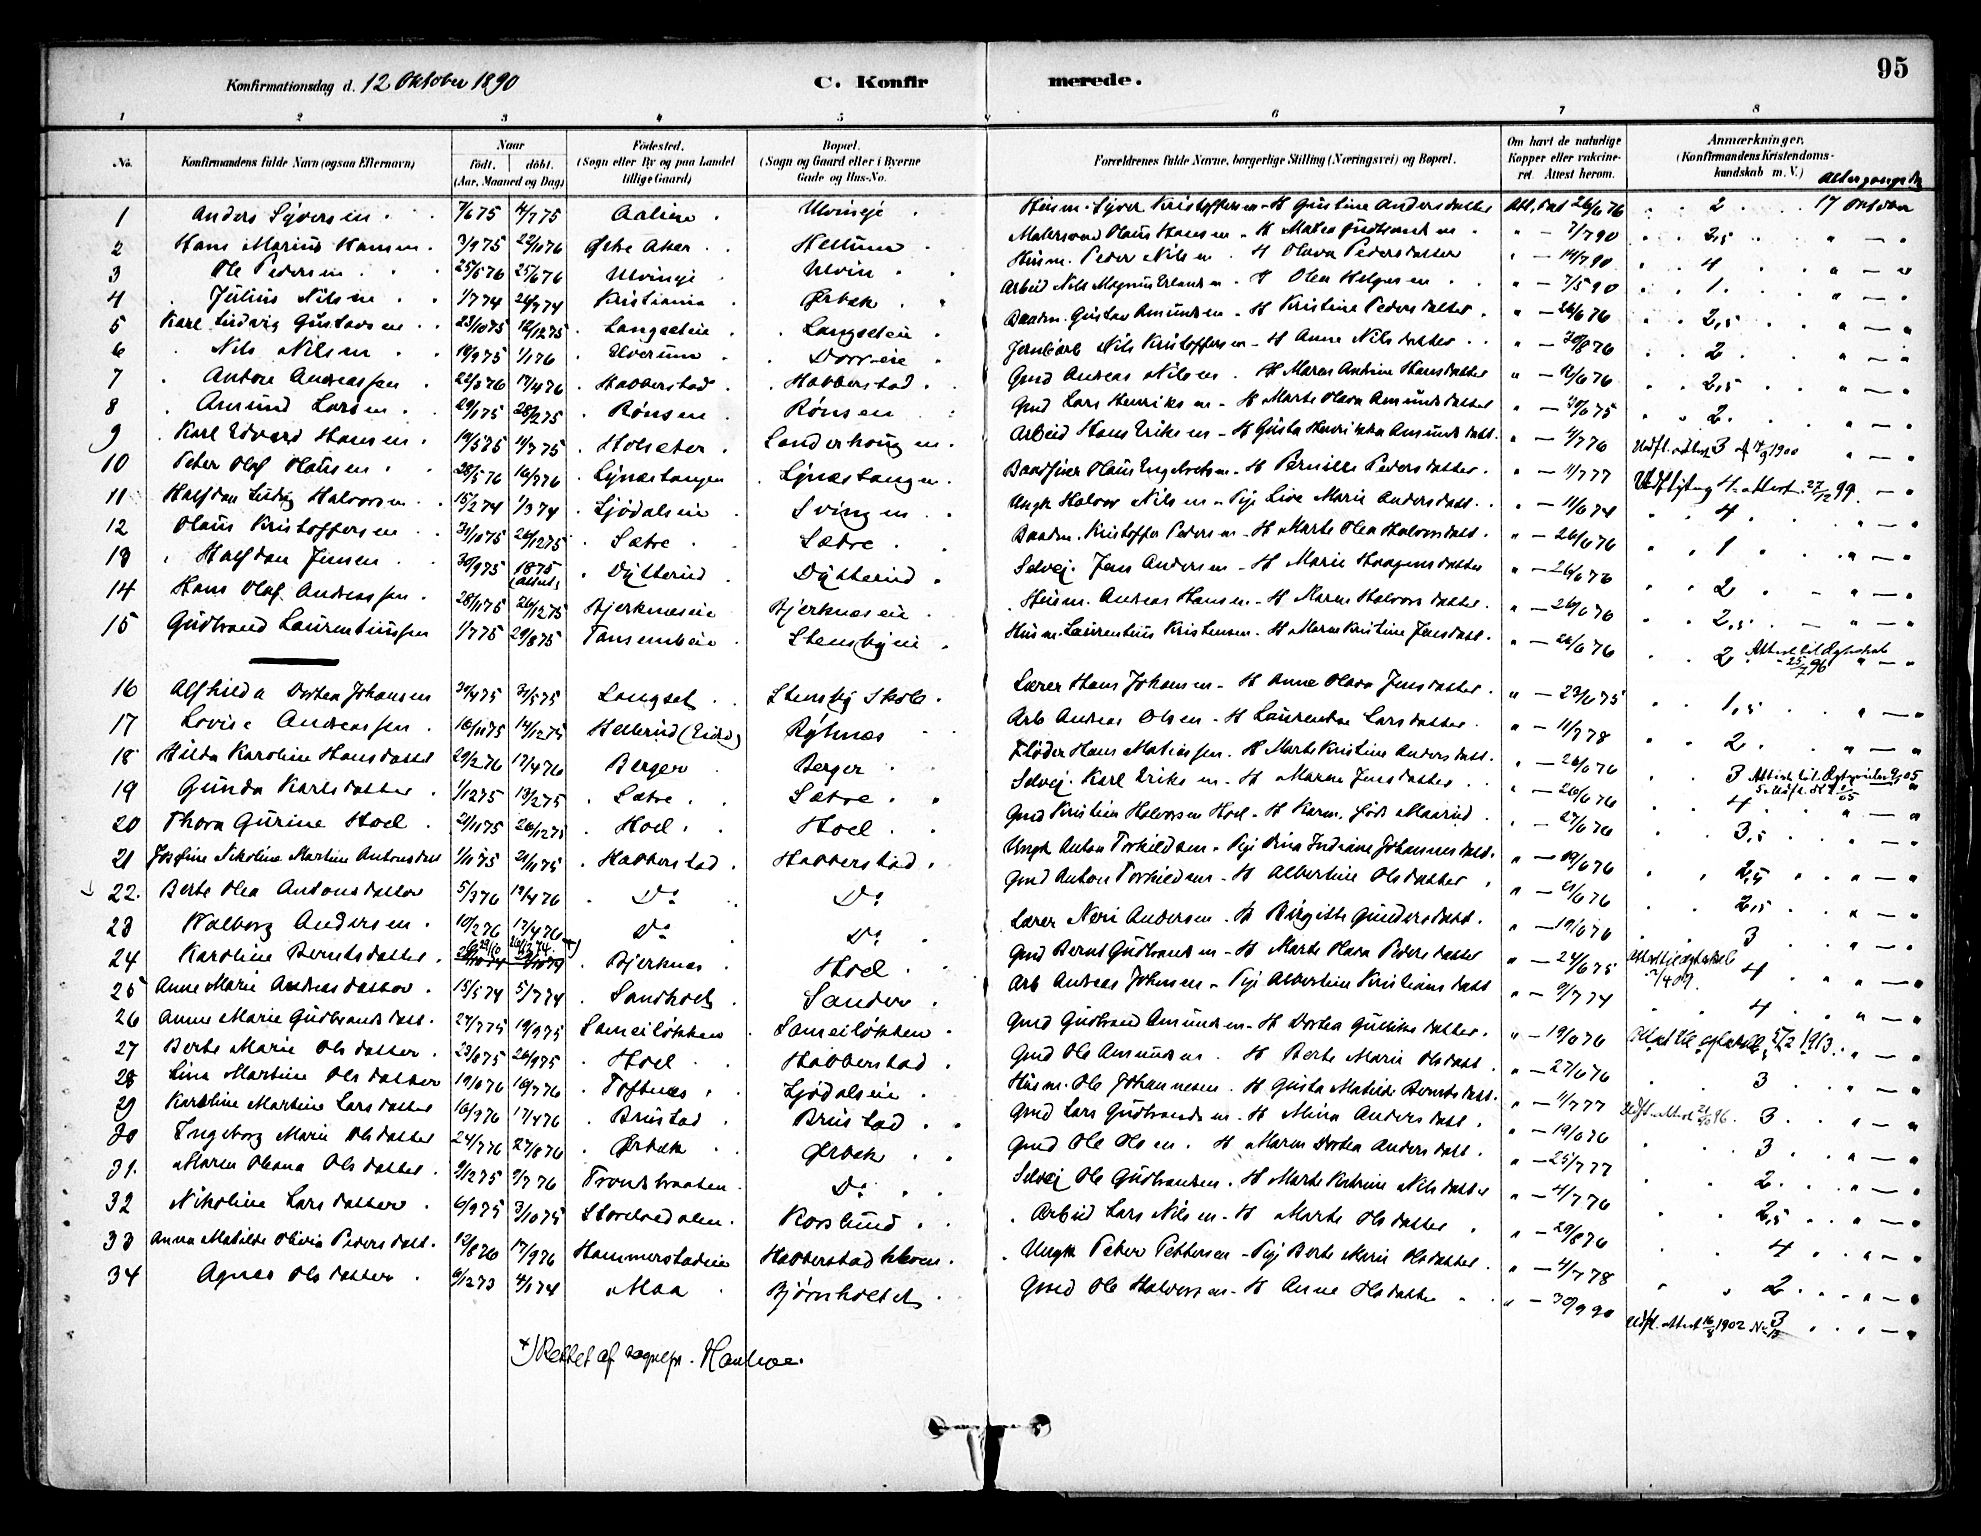 95
Konfirmationsdag d. 12 Oktober 1890 C. Konfirmerede.
1 2 3 4 5 6 7 8
No. Konfirmandens fulde Navn (ogsaa Efternavn) Naar født. døbt. (Aar, Maaned og Dag) Fødested. (Sogn eller By og paa Landet tillige Gaard) Bopæl. (Sogn og Gaard eller i Byerne Gade og Hus-No. Forældrenes fulde Navne, borgerlige Stilling (Næringsvei) og Bopæl. Om havt de naturlige Kopper eller vakcineret. Attest herom. Anmærkninger. (Konfirmandens Kristendomskundskab m. V.) Altergangsdag
1 Anders Syversen 7/6 75 4/7 75 Ulvineje Husm. Syver Kristoffersen - H Gustine Andersdatter Att. dat 26/6 76 2 17 Oktober
2 Hans Marius Hansen 3/9 75 Østre Aker Hellum Olaus Hansen - H Matea Gudbrandsen " — 7/7 90 2,5 " — "
3 Ole Pedersen 25/5 76 25/6 76 Ulvineje Ulvin Husm. Peder Nilsen - H Olava Pedersdatter " — 14/7 90 4 " — "
4 Julius Nilsen 1/7 74 26/7 74 Kristiania Ørbek Arbeid Nils Magnus Erlandsen - H Olea Helgesen " — 7/5 90 1 " — "
5 Karl Ludvig Gustavsen 23/10 75 12/12 75 Langseteie Langseteie Baadm. Gustav Amundsen - H Kristine Pedersdatter " — 26/6 76 2,5 " — "
6 Nils Nilsen 19/9 75 1/1 76 Elverum Dorreie Jernbarb Nils Kristoffersen - H Anne Nilsdatter " — 30/8 76 2 " — "
7 Anton Andreassen 17/4 76 Habberstad Habberstad Gmd Andreas Nilsen - H Maren Andrine Hansdatter " — 2,5 " — "
8 Amund Larsen 29/1 75 28/2 75 Rønsen Rønsen Gmd Lars Henriksen - H Marte Olava Amundsdatter " — 2 " — "
9 Karl Edvard Hansen 19/5 75 11/7 75 Holseter Sanderhougen Arbeid Hans Eriksen - H Gusta Henrikka Amundsdatt. " — 4/7 76 3 " — "
10 Peter Olaf Olausen 28/5 76 16/7 76 Lynestangen Lynestangen Baadfører Olaus Engebretsen - H Pernille Pedersdatter " — 11/7 77 27/12 99 " — "
11 Halfdan Ludvig Halvorsen 15/2 74 1/3 74 Ljødalseie Svingen Ungk Halvor Nilsen - Pige Live Marie Andersdatt. " — 11/6 74 4 " — "
12 Olaus Kristoffersen 31/10 75 26/12 75 Sætre Sætre Baadm. Kristoffer Pedersen - H Marte Olea Halvorsdatt. " — 26/6 76 1 " — "
13 Halfdan Jensen 30/9 75 1875 Dytterud Dytterud Selvej. Jens Andersen - H Marie Haagensdatter " — 26/6 76 2 " — "
14 Hans Olaf Andreassen 28/11 75 26/12 75 Bjerkneseie Bjerkneseie Husm. Andreas Hansen - H Maren Halvorsdatter " — 26/6 76 2,5 " — "
15 Gudbrand Laurentiussen 1/7 75 29/8 75 Stensbyeie Husm. Laurentius Kristensen - H Maren Kristine Jensdatt. " — 26/6 76 2 25/7 96 " — "
16 Alfhilda Dortea Johansen 31/5 75 Langset Stensby Skole Lærer Hans Johansen - H Anne Olava Jensdatter " — 23/6 75 1,5 " — "
17 Lovise Andreassen 16/11 75 14/12 75 Hellerud (Eids) Arb Andreas Olsen - H Laurentse Larsdatter " — 11/7 78 2 " — "
18 Hilda Karoline Hansdatter 29/2 76 17/4 76 Berger Berger Fløder Hans Matiassen - H Marte Kristine Andersdatt. " — 26/6 76 3
19 Gunda Karlsdatter 1/12 75 Sætre Sætre Selvej. Karl Eriksen - H Maren Jensdatter " — 26/6 76 4 " — "
20 Thora Gurine Hoel 21/11 75 26/12 75 Hoel Hoel Gmd Kristian Halvorsen Hoel - H Karen, født Maarud " — 27/6 76 3,5 " — "
21 Josefine Nikoline Martine Antonsdatt 1/11 75 21/11 75 Habberstad Habberstad Ungk Anton Torkildsen - Pige Dina Indiane Johannesdatt. " — 19/6 76 2,5 " — "
22. Berte Olea Antonsdatter 5/3 76 17/4 76 Do Do Gmd Anton Torkildsen - H Albertine Olsdatter " — 2,5 " — "
23 Valborg Andersen 10/2 76 17/4 76 Do Do Lærer Neri Andersen - H Birgitte Gundersdatt. " — 19/6 76 3 " — "
24 Karoline Berntsdatter x) Bjerknes Hoel Gmd Bernt Gudbrandsen - H Marte Olava Pedersdatter " — 24/6 75 4 " — "
25 Anne Marie Andreasdatter 15/5 74 5/7 74 Sandholt Sander Arb Andreas Johnsen - Pige Albertine Kristiansdatt " — 9/7 74 4 " — "
26 Anne Marie Gudbrandsdatt. 27/7 75 19/9 75 Sameiløkken Sameiløkken Gmd Gudbrand Amundsen - H Dortea Gulliksdatter " — 19/6 76 5/2 1913 " — "
27 Berte Marie Olsdatter 23/8 75 26/9 75 Hoel Habberstad Gmd Ole Amundsen - H Berte Marie Olsdatt " — 27/6 76 3 " — "
28 Lina Martine Olsdatter 16/7 76 Toftnes Ljødalseie Husm. Ole Johannesen - H Gusta Matilde Berntsdatt. " — 11/7 77 3 " — "
29 Karoline Martine Larsdatter 16/3 76 17/4 76 Brustad Brustad Gmd Lars Gudbrandsen - H Mina Andersdatt " — 19/6 76 3 " — "
30 Ingeborg Marie Olsdatter 24/7 76 27/8 76 Ørbek Ørbek Gmd Ole Olsen - H Maren Dortea Andersdatt. " — 25/7 77 2 " — "
31. Maren Oleana Olsdatter 9/12 75 Tronsbraaten Do Selvej Ole Gudbrandsen - H Marte Katrine Nilsdatter " — 4/7 76 2,5 " — "
32 Nikoline Larsdatter 6/9 75 3/10 75 Korslund Arbeid Lars Nilsen - H Marte Olsdatter " — 29/8 76 4 " — "
33 Anna Matilde Olivia Pedersdatt. 12/8 76 17/9 76 Hammerstadeie Ungk Peter Pettersen - Pige Berte Marie Olsdatter " — 4/7 78 2 " — "
34 Agnes Olsdatter 6/12 73 4/1 74 Maa Bjørnholtet Gmd Ole Halvorsen - H Anne Olsdatter " — 30/9 90 Udfl. attest 16/8 1902 3 " — "
x) Rettet af sognepr. Hanhoe.